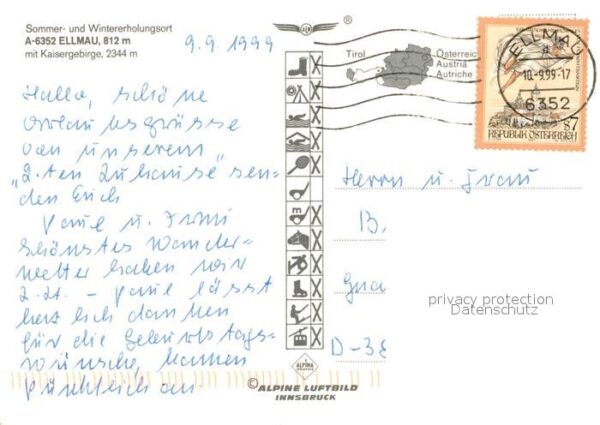 Sommer- und Wintererholungsort
A-6352 ELLMAU, 812 m
mit Kaisergebirge, 2344 m
9.9.1999
Hallo, schöne
Urlaubsgrüsse
von unserem
"2.ten Zuhause" sen-
den Euch
Paul u. Irmi
Schönstes Wander-
wetter haben wir
z.Zt. - Paul lässt
herzlich danken
für die Geburtstags-
wünsche, kamen
pünktlich an
®
Tirol
Österreich
Austria
Autriche
ELLMAU
10.-9.99-17
6352
s7
REPUBLIK ÖSTERREICH
Herrn u. Frau
B.
Gna
D-38
privacy protection
Datenschutz
ALPINA
©ALPINE LUFTBILD
INNSBRUCK